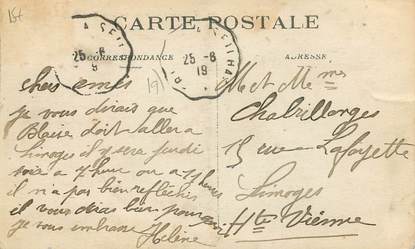 CARTE POSTALE
CORRESPONDANCE
ADRESSE
25-8
19
SEILHAC
chers amis
je vous dirais que
Blaise doit aller a
Limoges il y sera jeudi
soir a 7 heure ou a 9 heures
il n'a pas bien refléchis
il vous dira bien pourquoi
je vous embrasse Hélène
M et Mmes
Chabrillanges
15 rue Lafayette
Limoges
Hte Vienne